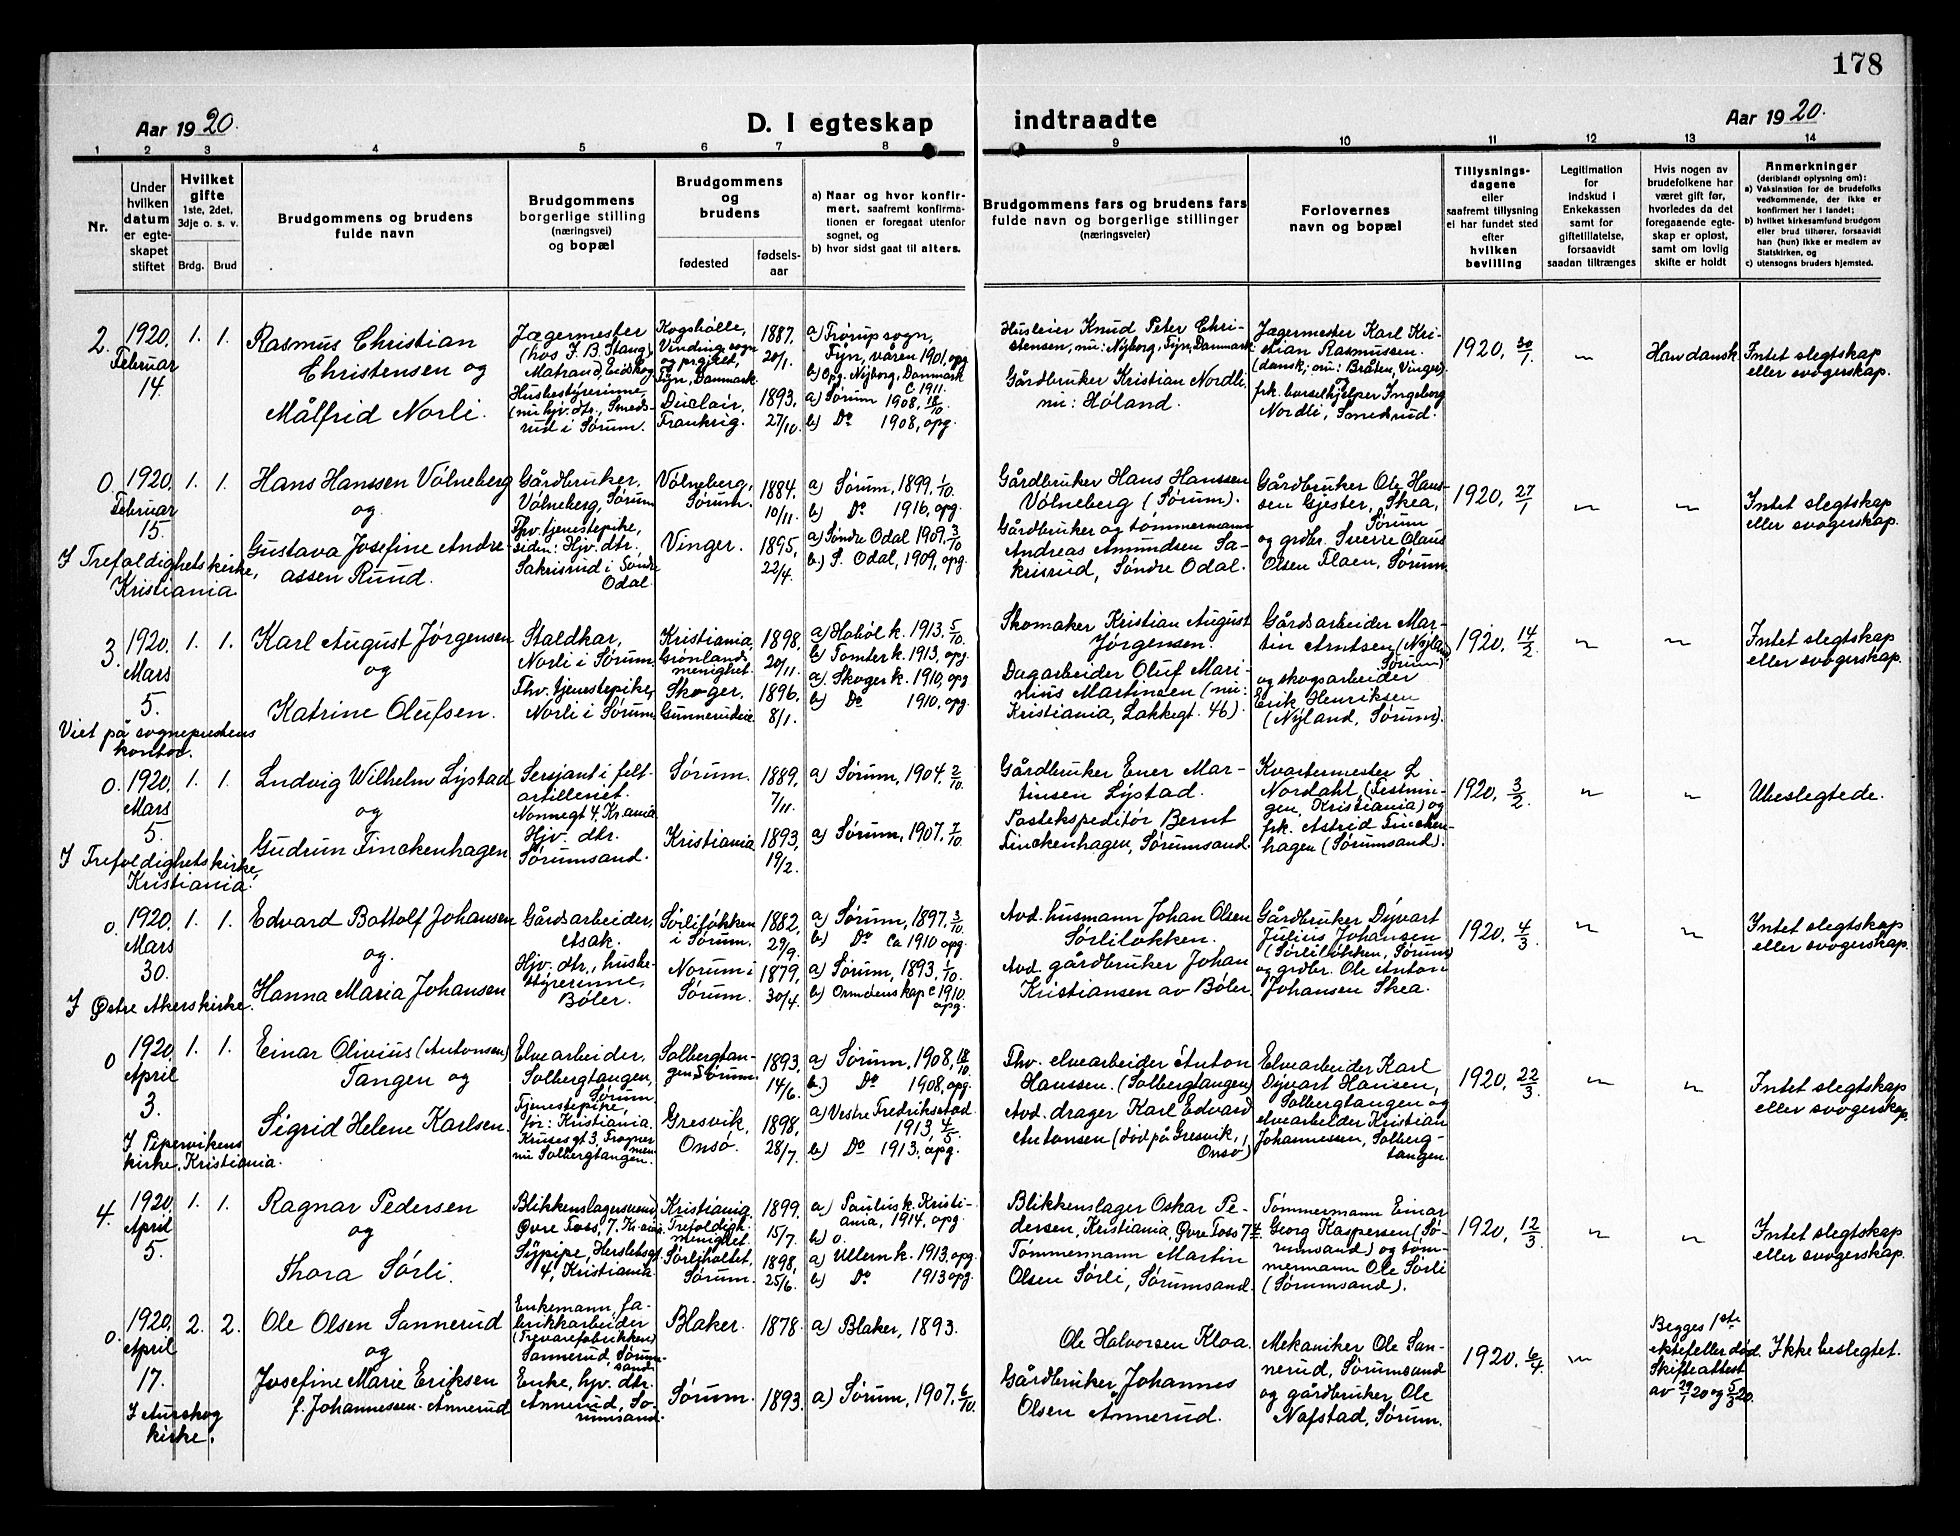 178
Aar 1920.
D. I egteskap
indtraadte
Aar 1920.
1 2 3 4 5 6 7 8 9 10 11 12 13 14
Nr.
Under hvilken datum er egte-skapet stiftet
Hvilket gifte
1ste, 2det, 3dje o. s. v.
Brdg. Brud
Brudgommens og brudens fulde navn
Brudgommens borgerlige stilling (næringsvei) og bopæl
Brudgommens og brudens
fødested
fødsels-aar
a) Naar og hvor konfir-mert, saafremt konfirma-tionen er foregaat utenfor sognet, og
b) hvor sidst gaat til alters.
Brudgommens fars og brudens fars fulde navn og borgerlige stillinger (næringsveier)
Forlovernes navn og bopæl
Tillysnings-dagene eller saafremt tillysning ei har fundet sted efter hvilken bevilling
Legitimation for indskud i Enkekassen samt for giftetillatelse, forsaavidt saadan tiltrænges
Hvis nogen av brudefolkene har været gift før, hvorledes da det foregaaende egte-skap er opløst, samt om lovlig skifte er holdt
Anmerkninger (deriblandt oplysning om):
a) Vaksination for de brudefolks vedkommende, der ikke er konfirmert her i landet;
b) hvilket kirkesamfund brudgom eller brud tilhører, forsaavidt han (hun) ikke er medlem av Statskirken, og
c) utensogns bruders hjemsted.
2. 1920, Februar 14. 1. 1.
Rasmus Christian
Christensen og
Målfrid Norli.
Jægermester
(hos J. B. Stang,
Matrand, Eidskog
Husbestyrerinne
(nu hjv. dtr., Smeds-
rud i Sørum.
Kogshølle,
Vinding sogn
og prgjket,
Fyn, Danmark.
Duclair,
Frankrig.
1887, 20/1.
1893, 27/10.
a) Frørup sogn,
Fyn, våren 1901, opg
b) Opg. Nyborg, Danmark
c. 1911.
a) Sørum 1908, 18/10
b) Do 1908, opg.
Husleier Knud Peter Chri-
stensen, nu: Nyborg, Fyn, Danmark
Gårdbruker Kristian Nordli
nu: Høland.
Jægermester Karl Kri-
stian Rasmussen.
(dansk; nu: Bråten, Vinger)
frk. barselhjelper Ingeborg
Nordli, Smedsrud.
1920, 30/1
"
Han dansk.
Intet slegtskap
eller svogerskap.
0. 1920, Februar 15. 1. 1.
I Trefoldighetskirke,
Kristiania
Hans Hanssen Vølneberg
og
Gustava Josefine Andre-
assen Ruud.
Gårdbruker,
Vølneberg, Sørum
Fhv. tjenestepike,
siden: Hjv. dtr.
Sakrisrud i Søndre
Odal
Vølneberg,
Sørum.
Vinger.
1884. 10/11.
1895, 22/4.
a) Sørum, 1899. 1/10.
b) Do 1916, opg.
a) Søndre Odal 1909. 3/10
b) S. Odal, 1909, opg.
Gårdbruker Hans Hanssen
Vølneberg (Sørum).
Gårdbruker og tømmermann
Andreas Amundsen Sa-
krisrud, Søndre Odal.
Gårdbruker Ole Hans-
sen Gjester, Skea,
Sørum
og grdbr. Sverre Olaus
Olsen Flaen, Sørum
1920, 27/1
"
"
Intet slegtskap
eller svogerskap.
3. 1920, Mars 5. 1. 1.
Viet på sogneprestens
kontor.
Karl August Jørgensen
og
Katrine Olufsen.
Staldkar,
Norli i Sørum.
Fhv. tjenestepike,
Norli i Sørum
Kristiania,
Grønlands
menighet.
Skoger,
Gunnerudeie
1898, 20/11.
1896. 8/1.
a) Habøl k. 1913. 5/10.
b) Tomter k. 1913, opg.
a) Skoger k. 1910, opg
b) Do 1910, opg.
Skomaker Kristian August
Jørgensen.
Dagarbeider Oluf Mari-
nius Martinsen (nu:
Kristiania, Lakkegt. 46).
Gårdsarbeider Mar-
tin Arntsen (Nyland
Sørum)
og skogsarbeider
Erik Henriksen
(Nyland, Sørum).
1920, 14/2
"
"
Intet slegtskap
eller svogerskap.
0. 1920, Mars 5. 1. 1.
I Trefoldighetskirke,
Kristiania.
Ludvig Wilhelm Lystad
og
Gudrun Finckenhagen
Sersjant i felt-
artilleriet.
Nonnegt 4, Kr.ania
Hjv. dtr.
Sørumsand.
Sørum.
Kristiania
1889, 7/11.
1893, 19/2.
a) Sørum, 1904. 2/10.
a) Sørum, 1907. 7/10.
Gårdbruker Ener Mar-
tinsen Lystad.
Postekspeditør Bernt
Finckenhagen, Sørumsand.
Kvartermester L
Nordahl, (Festnin-
gen, Kristiania) og
frk. Astrid Fincken-
hagen (Sørumsand).
1920, 3/2.
"
"
Ubeslegtede.
0. 1920. Mars 30. 1. 1.
I Østre Akers kirke.
Edvard Bottolf Johansen
og.
Hanna Maria Johansen
Gårdsarbeider,
Asak.
Hjv. dtr., huske-
styrerinne,
Bøler.
Sørliløkken
i Sørum.
Norum i
Sørum.
1882, 29/9.
1879, 30/4.
a) Sørum, 1897. 3/10.
b) Do ca 1910 opg
a) Sørum, 1893. 1/10.
b) Ormøenskap c 1910.
opg.
Avd. husmann Johan Olsen
Sørliløkken.
Avd. gårdbruker Johan
Kristiansen av Bøler.
Gårdbruker Dyvart
Julius Johansen
(Sørliløkken, Sørum)
og grdbr. Ole Anton
Johansen Skea.
1920, 4/3.
"
"
Intet slegtskap
eller svogerskap.
0 1920, April 3. 1. 1.
I Pipervikens
kirke, Kristiania.
Einar Olivius (Antonsen)
Tangen og
Sigrid Helene Karlsen.
Elvearbeider,
Solbergtangen,
Sørum
Tjenestepike,
før: Kristiania.
Krusesgt 3, Frogner
men.
nu Solbergtangen.
Solbergtan-
gen, Sørum
Gresvik,
Onsø.
1893, 14/6.
1898, 28/7.
a) Sørum, 1908, 18/10.
b.) Do 1908, opg.
a) Vestre Fredrikstad
1913, 4/5
b) Do 1913, opg.
Fhv. elvearbeider Anton
Hanssen. (Solbergtangen)
Avd. drager Karl Edvard
Antonsen (død på Gresvik,
Onsø)
Elvearbeider Karl
Dyvart Hansen,
Solbergtangen og
elvearbeider Kristian
Johannessen, Solberg-
tangen.
1920, 22/3.
"
"
Intet slegtskap
eller svogerskap
4. 1920, April 5. 1. 1.
Ragnar Pedersen
og
Thora Sørli.
Blikkenslagersvend,
Øvre Foss, 7, Kr.ania.
Sypipe, Herslebsgt
4, Kristiania
Kristiania,
Trefoldigh.
menighet.
Sørliholtet,
Sørum.
1899. 15/7.
1898, 25/6.
a) Paulus k. Kristi-
ania, 1914, opg.
b) 0.
a) Ullern k. 1913. opg.
b) Do 1913 opg.
Blikkenslager Oskar Pe-
dersen, Kristiania, Øvre Foss 7
Tømmermann Martin
Olsen Sørli, Sørumsand.
Tømmermann Einar
Georg Kaspersen (Sø-
rumsand) og tøm-
mermann Ole Sørli
(Sørumsand).
1920, 12/3.
"
"
Intet slegtskap
eller svogerskap.
0. 1920, April 17. 2. 2.
I Aurskog
kirke.
Ole Olsen Sannerud
og
Josefine Marie Eriksen
f. Johannessen-Annerud
Enkemann, fa-
brikkarbeider
(Trevarefabrikken)
Sannerud, Sørum-
sand.
Enke, hjv. dtr.
Annerud, Sø-
rumsand.
Blaker.
Sørum.
1878.
1893.
a) Blaker, 1893.
a) Sørum, 1907. 6/10.
Ole Halvorsen Kloa
Gårdbruker Johannes
Olsen Annerud.
Mekaniker Ole San-
nerud, Sørumsand
og gårdbruker, Ole
Nafstad, Sørum.
1920, 6/4.
"
Begges 1ste
ektefeller død.
Skifteattest
av 29/1 20 og 5/3 20.
Ikke beslegtet.